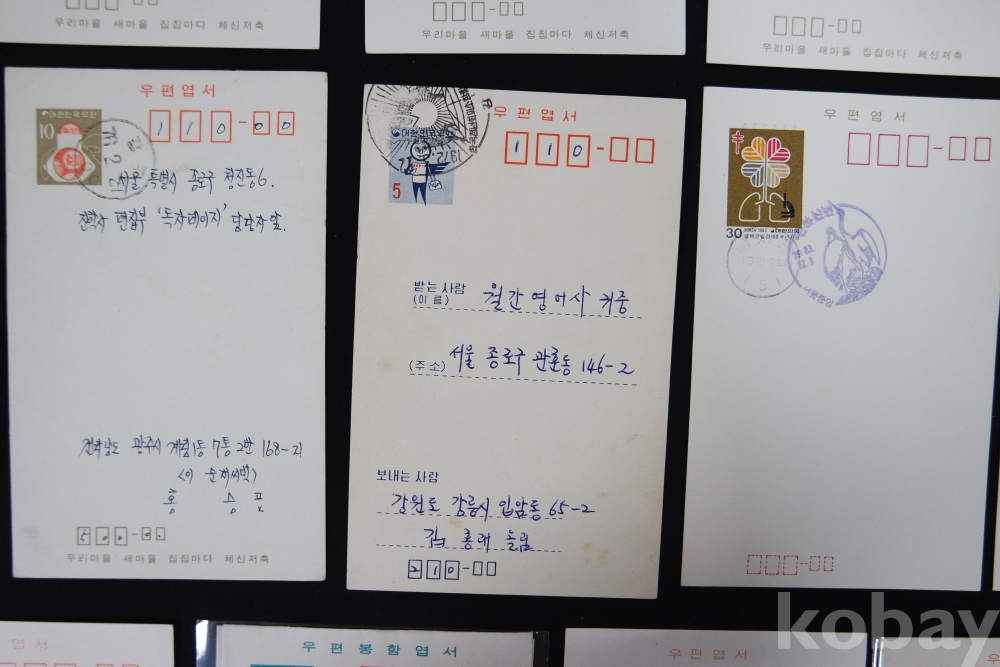 우리마을 새마을 집집마다 체신저축
우리마을 새마을 집집마다 체신저축
우리마을 새마을 집집마다 체신저축
우편엽서
대한민국우편
10
110-00
서울 특별시 종로구 청진동6.
편집부 '독자페이지' 담당자 앞.
전라남도 광주시 계림1동 7통 2반 168-21
홍 승 표
500-00
우리마을 새마을 집집마다 체신저축
우편엽서
대한민국우편
5
1972.
110-
받는사람
(이 름)
월간영어사 귀중
(주 소)
서울 종로구 관훈동 146-2
보내는 사람
강원도 강릉시 입암동 65-2
드림
210-
우편엽서
30
대한민국
우편엽서
우편봉함엽서
우편엽서
kobay